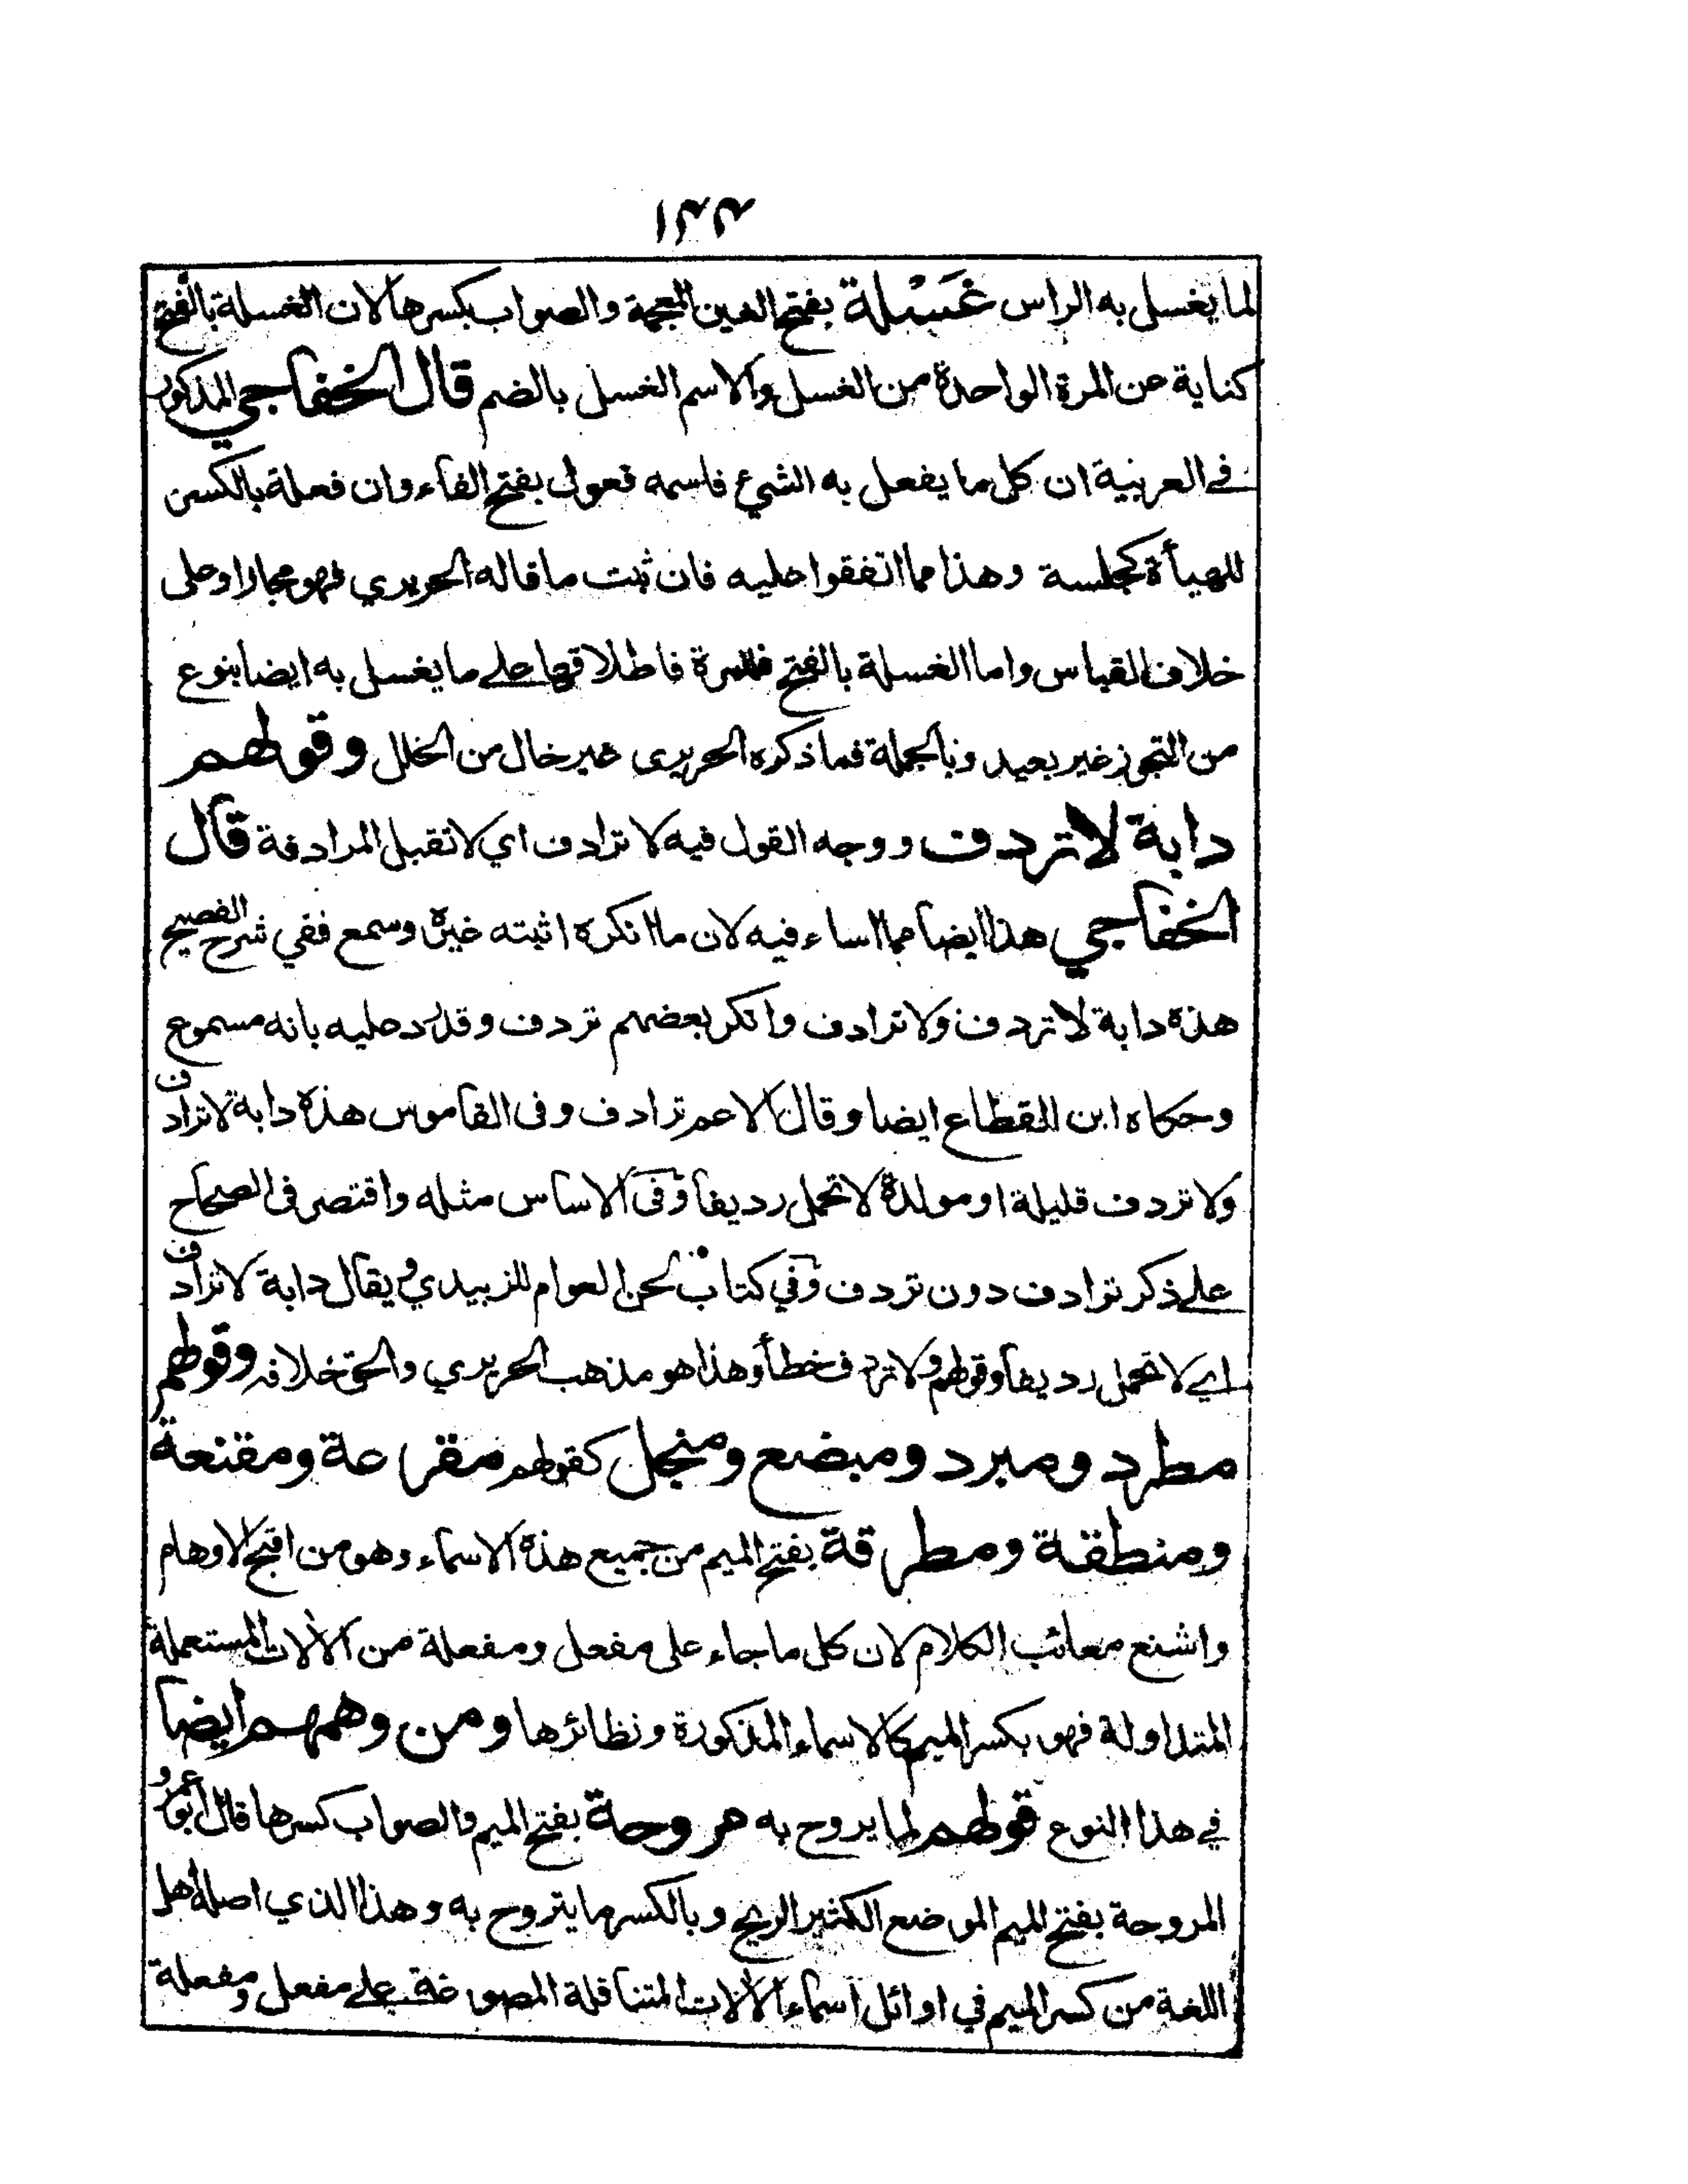 لما يغسل به الراس غَسْلة بفتح الغين المعجمة والصواب بكسرها لان الغسلة بالفتح
كناية عن المرة الواحدة من الغسل والاسم الغسل بالضم قال الخفاجي المذكور
في العربية ان كل ما يفعل به الشيء فاسمه فعول بفتح الفاء وان فعلة بالكسر
للهيأة كجلسة وهذا مما اتفقوا عليه فان ثبت ما قاله الحريري فهو مجاز او على
خلاف القياس واما الغسلة بالفتح فللمرة فاطلاقها على ما يغسل به ايضا بنوع
من التجوز غير بعيد وبالجملة فما ذكره الحريرى غير خال من الخلل وقولهم
دابة لا تردف ووجه القول فيه لا ترادف اي لا تقبل المرادفة قال
الخفاجي هذا ايضا مما اساء فيه لان ما انكره اثبته غيره وسمع ففي شرح الفصيح
هذه دابة لا تردف ولا ترادف وانكر بعضهم تردف وقد رد عليه بانه مسموع
وحكاه ابن القطاع ايضا وقال الاعم ترادف وفى القاموس هذه دابة لا ترادف
ولا تردف قليلة او مولدة لا تحمل رديفا وفى الاساس مثله واقتصر فى الصحاح
على ذكر ترادف دون تردف وفي كتاب لحن العوام للزبيدي ويقال دابة لا ترادف
اي لا تحمل رديفا وقولهم ولا تردف خطأ وهذا هو مذهب الحريري والحق خلافه وقولهم
مطرد ومبرد ومبضع ومنجل كقولهم مقرعة ومقنعة
ومنطقة ومطرقة بفتح الميم من جميع هذه الاسماء وهو من اقبح الاوهام
واشنع معائب الكلام لان كل ما جاء على مفعل ومفعلة من الالات المستعملة
المتداولة فهو بكسر الميم كالاسماء المذكورة ونظائرها ومن وهمهم ايضا
في هذا النوع قولهم لما يروح به مروحة بفتح الميم والصواب كسرها قال ابو عمرو
المروحة بفتح الميم الموضع الكثير الريح وبالكسر ما يتروح به وهذا الذي اصله اهل
اللغة من كسر الميم في اوائل اسماء الالات المتناقلة المصوغة على مفعل ومفعلة